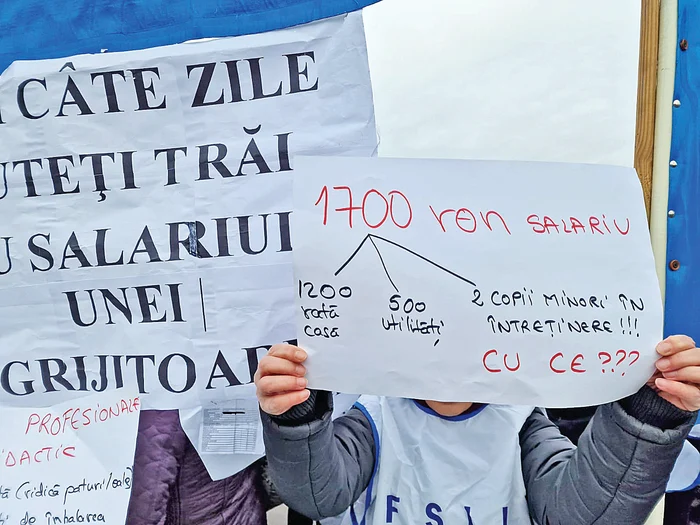 CÂTE ZILE
UTEŢI TRĂI
U SALARIUL
UNEI
GRIJITOA
1700 ron SALARIU
1200 rată casă
500 utilităţi
2 COPII MINORI ÎN
ÎNTREȚINERE !!!
CU CE ???
PROFESIONALE
DACTIC
tă (ridică paturi/sale
de îmbăiarea
F S L I